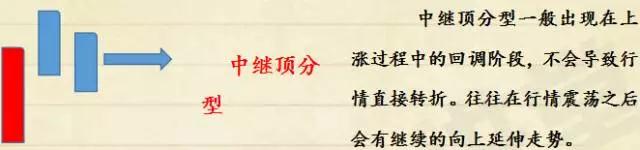 中继顶分
型
中继顶分型一般出现在上
涨过程中的回调阶段，不会导致行
情直接转折。往往在行情震荡之后
会有继续的向上延伸走势。